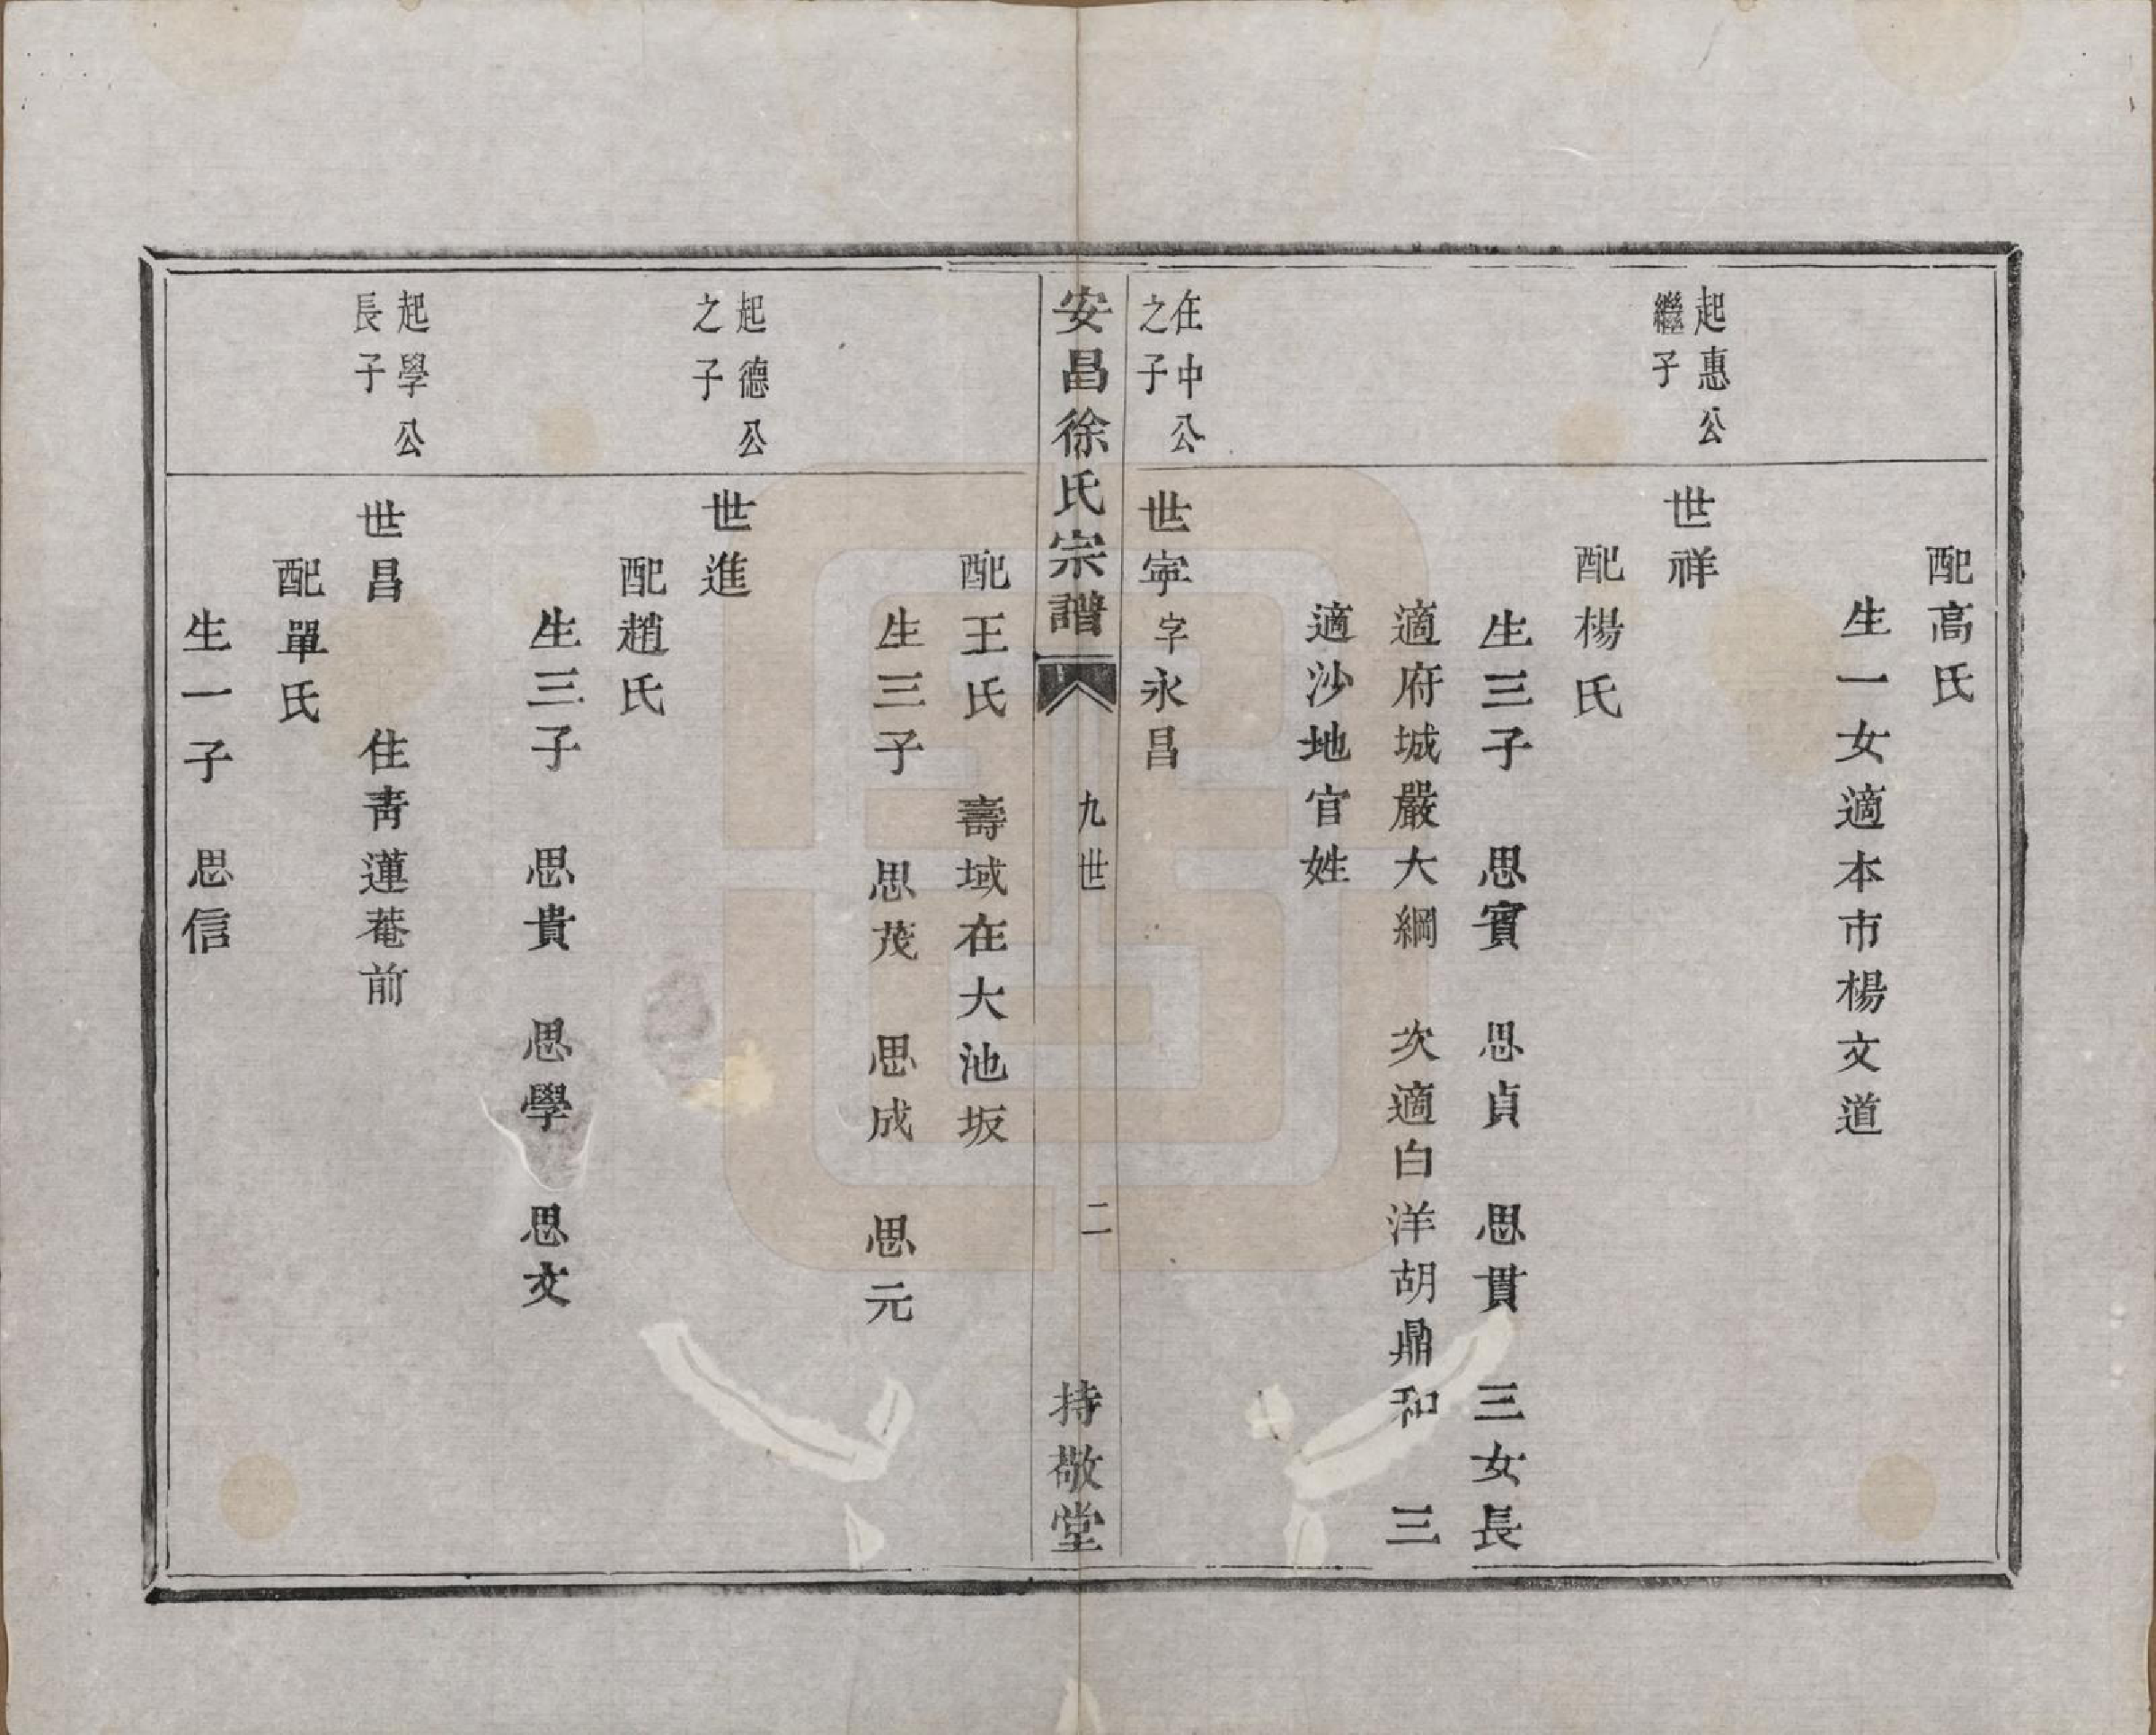 配高氏
生一女適本市楊文道
起惠公
繼子
世祥
配楊氏
生三子　思賓　思貞　思貫　三女長
適府城嚴大綱　次適白洋胡鼎和　三
適沙地官姓
在中公
之子
世寧字永昌
安昌徐氏宗譜　九世　二　持敬堂
配王氏　壽域在大池坂
生三子　思茂　思成　思元
起德公
之子
世進
配趙氏
生三子　思貴　思學　思文
起學公
長子
世昌　住青蓮菴前
配單氏
生一子　思信